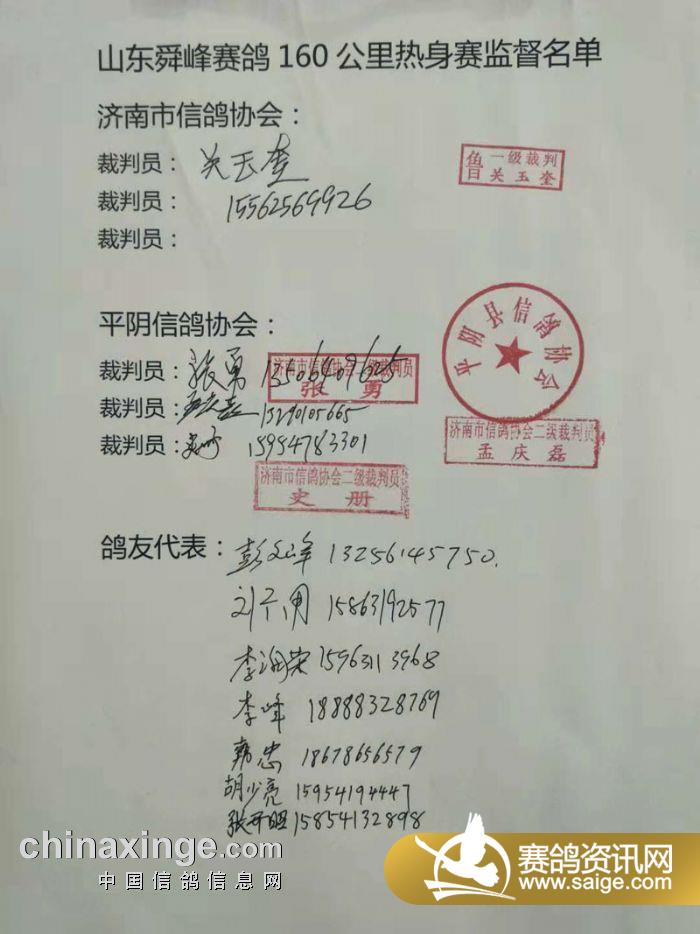 山东舜峰赛鸽160公里热身赛监督名单
济南市信鸽协会：
裁判员：关玉奎
鲁 一级裁判
晋 关玉奎
裁判员：15562569926
裁判员：
平阴信鸽协会：
平阴县信鸽协会
裁判员：张勇 13506409625
济南市信鸽协会二级裁判员
张勇
裁判员：孟庆磊 13290105665
济南市信鸽协会二级裁判员
孟庆磊
裁判员：史册 15954783301
济南市信鸽协会二级裁判员
史册
鸽友代表：彭 13256145750.
刘 15863192577
李润宋 15963113968
李峰 18888328769
韩忠 18678656579
胡少亮 15954194447
张开 15854132898
chinaxinge.com
中国信鸽信息网
赛鸽资讯网
www.saige.com